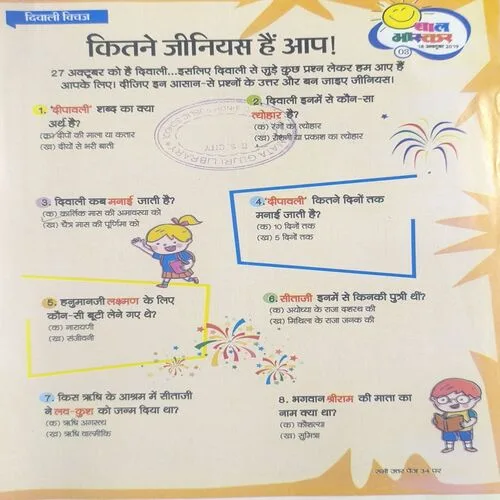 दिवाली क्विज
बाल
भास्कर
03
18 अक्टूबर 2019
कितने जीनियस हैं आप!
27 अक्टूबर को है दिवाली...इसलिए दिवाली से जुड़े कुछ प्रश्न लेकर हम आए हैं
आपके लिए। दीजिए इन आसान-से प्रश्नों के उत्तर और बन जाइए जीनियस।
1. 'दीपावली' शब्द का क्या
अर्थ है?
(क) दीपों की माला या कतार
(ख) दीपों से भरी बाती
2. दिवाली इनमें से कौन-सा
त्योहार है?
(क) रंगों का त्योहार
(ख) रोशनी या प्रकाश का त्योहार
MATA GUJRI LIBRARY
3. दिवाली कब मनाई जाती है?
(क) कार्तिक मास की अमावस्या को
(ख) चैत्र मास की पूर्णिमा को
4. 'दीपावली' कितने दिनों तक
मनाई जाती है?
(क) 10 दिनों तक
(ख) 5 दिनों तक
5. हनुमानजी लक्ष्मण के लिए
कौन-सी बूटी लेने गए थे?
(क) नारायणी
(ख) संजीवनी
6. सीताजी इनमें से किनकी पुत्री थीं?
(क) अयोध्या के राजा दशरथ की
(ख) मिथिला के राजा जनक की
7. किस ऋषि के आश्रम में सीताजी
ने लव-कुश को जन्म दिया था?
(क) ऋषि अगस्त्य
(ख) ऋषि वाल्मीकि
8. भगवान श्रीराम की माता का
नाम क्या था?
(क) कौशल्या
(ख) सुमित्रा
सभी उत्तर पेज 34 पर